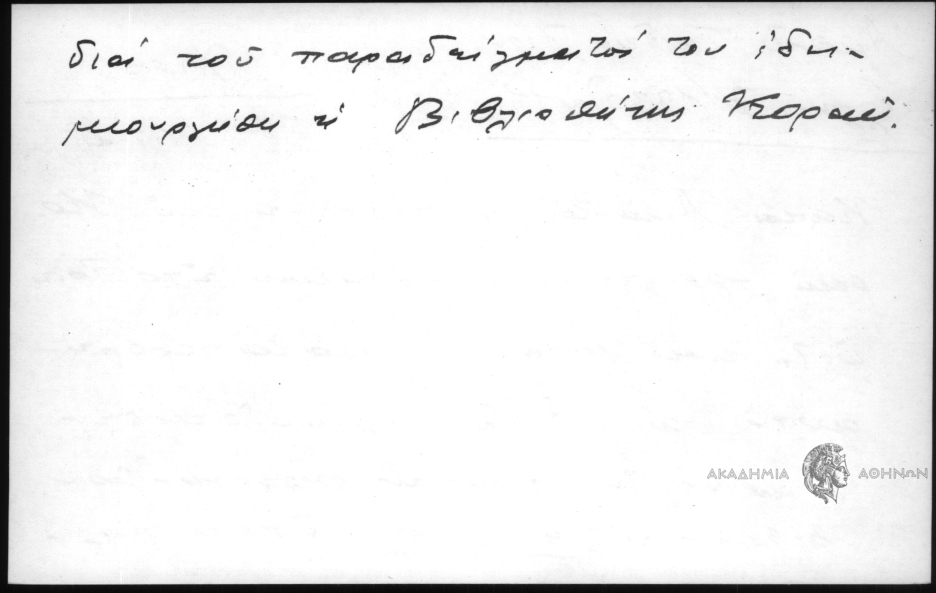 διά τοῦ παραδείγματός του ἐδη-
μιουργήθη ἡ Βιβλιοθήκη Κοραῆ.
ΑΚΑΔΗΜΙΑ ΑΘΗΝΩΝ